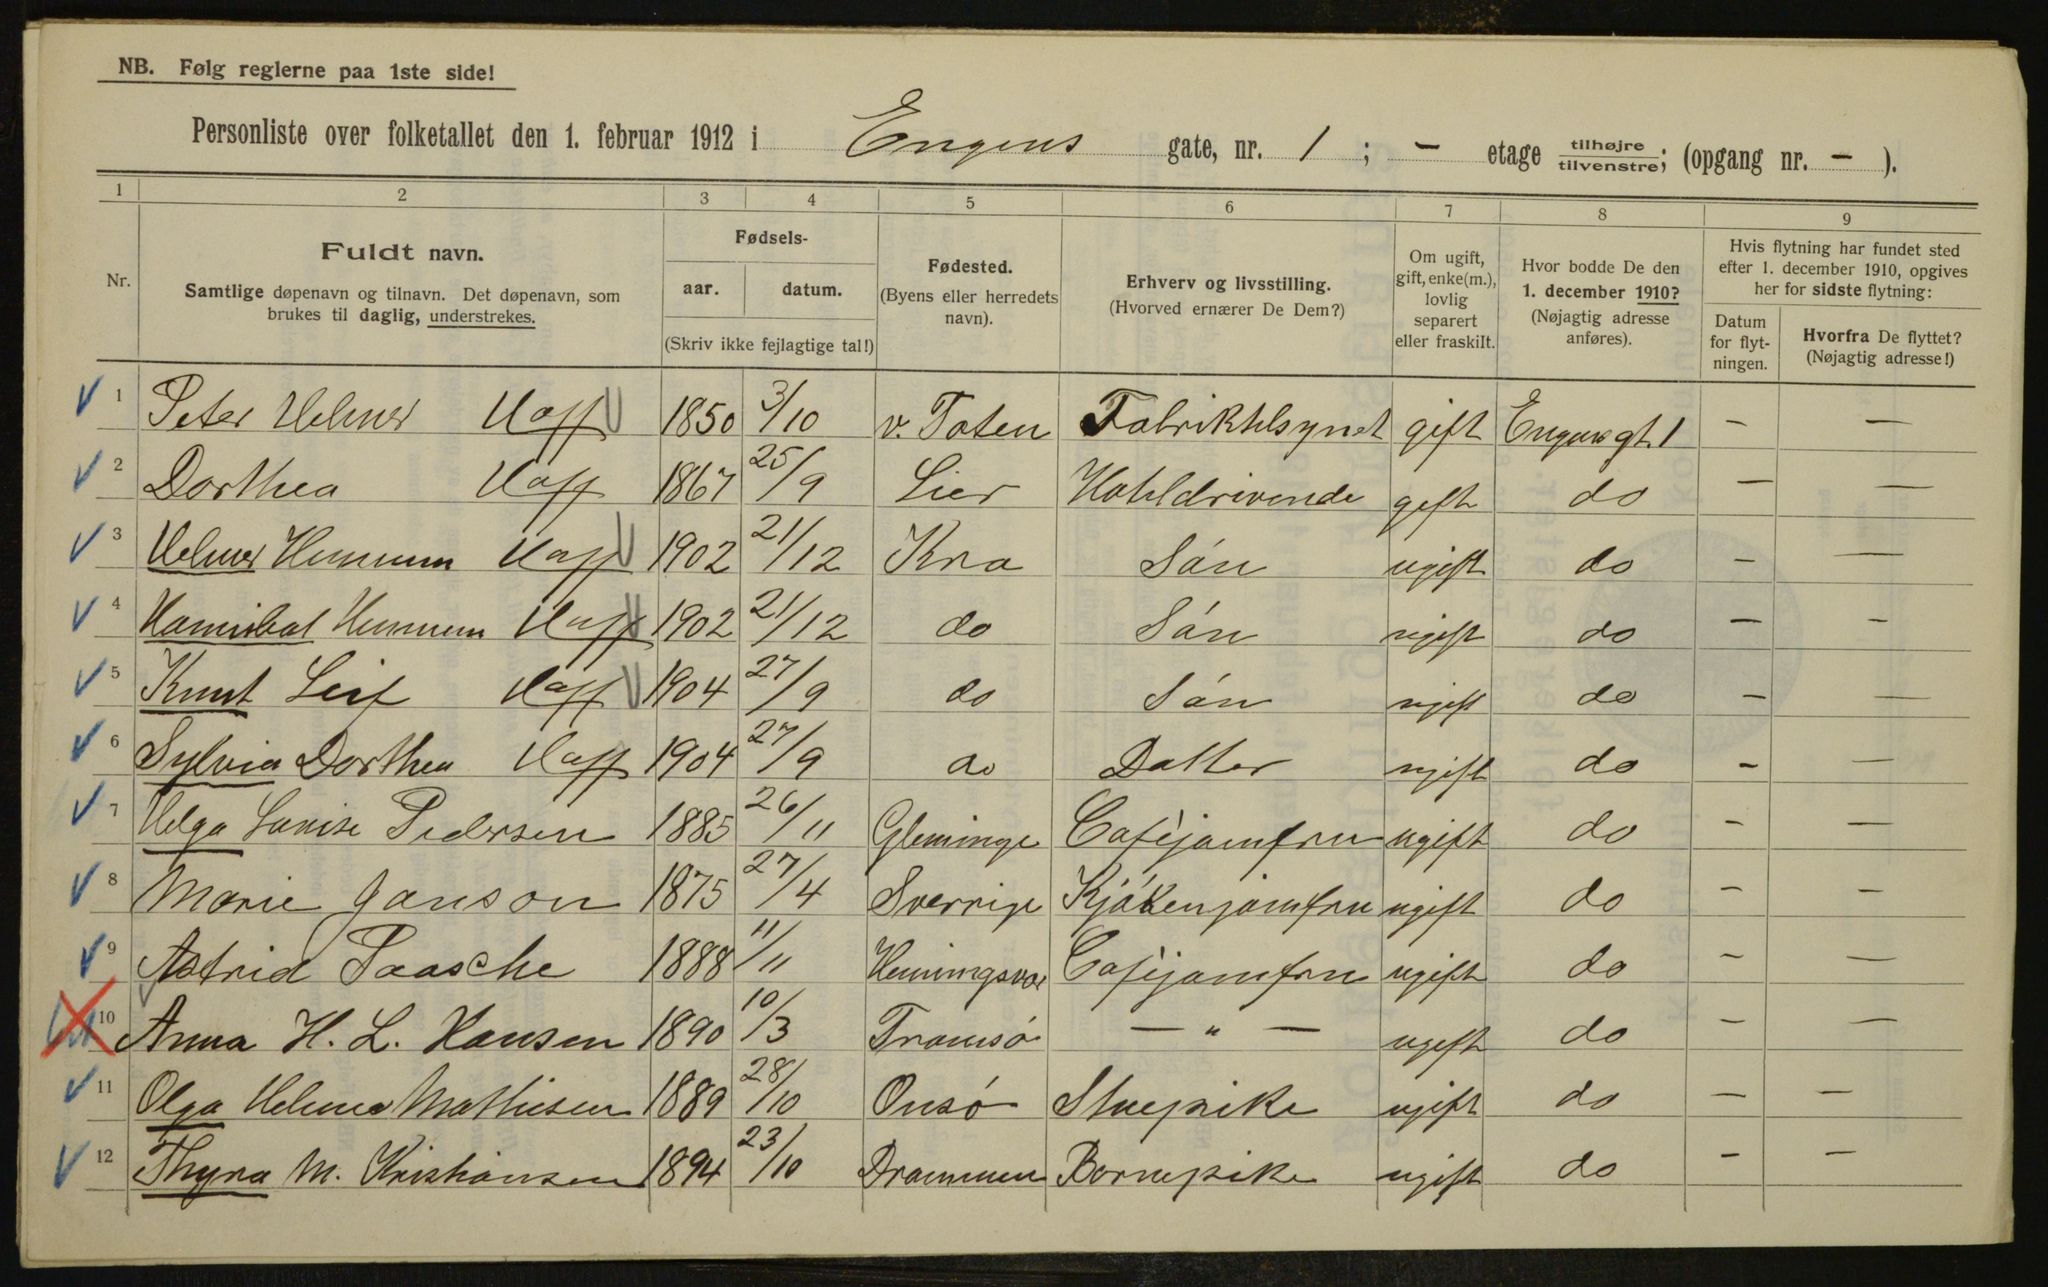 NB. Følg reglerne paa 1ste side!
Personliste over folketallet den 1. februar 1912 i Engens gate, nr. 1 ; — etage tilhøjre/tilvenstre; (opgang nr. — ).
1 2 3 4 5 6 7 8 9
Nr.
Fuldt navn.
Samtlige døpenavn og tilnavn. Det døpenavn, som
brukes til daglig, understrekes.
Fødsels-
aar. datum.
(Skriv ikke fejlagtige tal!)
Fødested.
(Byens eller herredets
navn).
Erhverv og livsstilling.
(Hvorved ernærer De Dem?)
Om ugift,
gift, enke(m.),
lovlig
separert
eller fraskilt.
Hvor bodde De den
1. december 1910?
(Nøjagtig adresse
anføres).
Hvis flytning har fundet sted
efter 1. december 1910, opgives
her for sidste flytning:
Datum
for flyt-
ningen.
Hvorfra De flyttet?
(Nøjagtig adresse!)
1 Peter Helmer Haff 1850 3/10 v. Toten Fabriktilsynet gift Engensgt. 1 — —
2 Dorthea Haff 1867 25/9 Lier Hoteldrivende gift do — —
3 Helmer Hennum Haff 1902 21/12 Kra Són ugift do — —
4 Hannibal Hennum Haff 1902 21/12 do Són ugift do — —
5 Knut Leif Haff 1904 27/9 do Són ugift do — —
6 Sylvia Dorthea Haff 1904 27/9 do Datter ugift do — —
7 Helga Lovise Pedersen 1885 26/11 Gleminge Caféjomfru ugift do — —
8 Marie Janson 1875 27/4 Sverrige Kjókkenjomfru ugift do — —
9 Astrid Paasche 1888 11/11 Henningsvær Caféjomfru ugift do — —
10 Anna H. L. Hansen 1890 10/3 Tromsó — " — ugift do — —
11 Olga Helene Mathiesen 1889 28/10 Onsó Stuepike ugift do — —
12 Thyra M. Kristiansen 1894 23/10 Drammen Barnepike ugift do — —